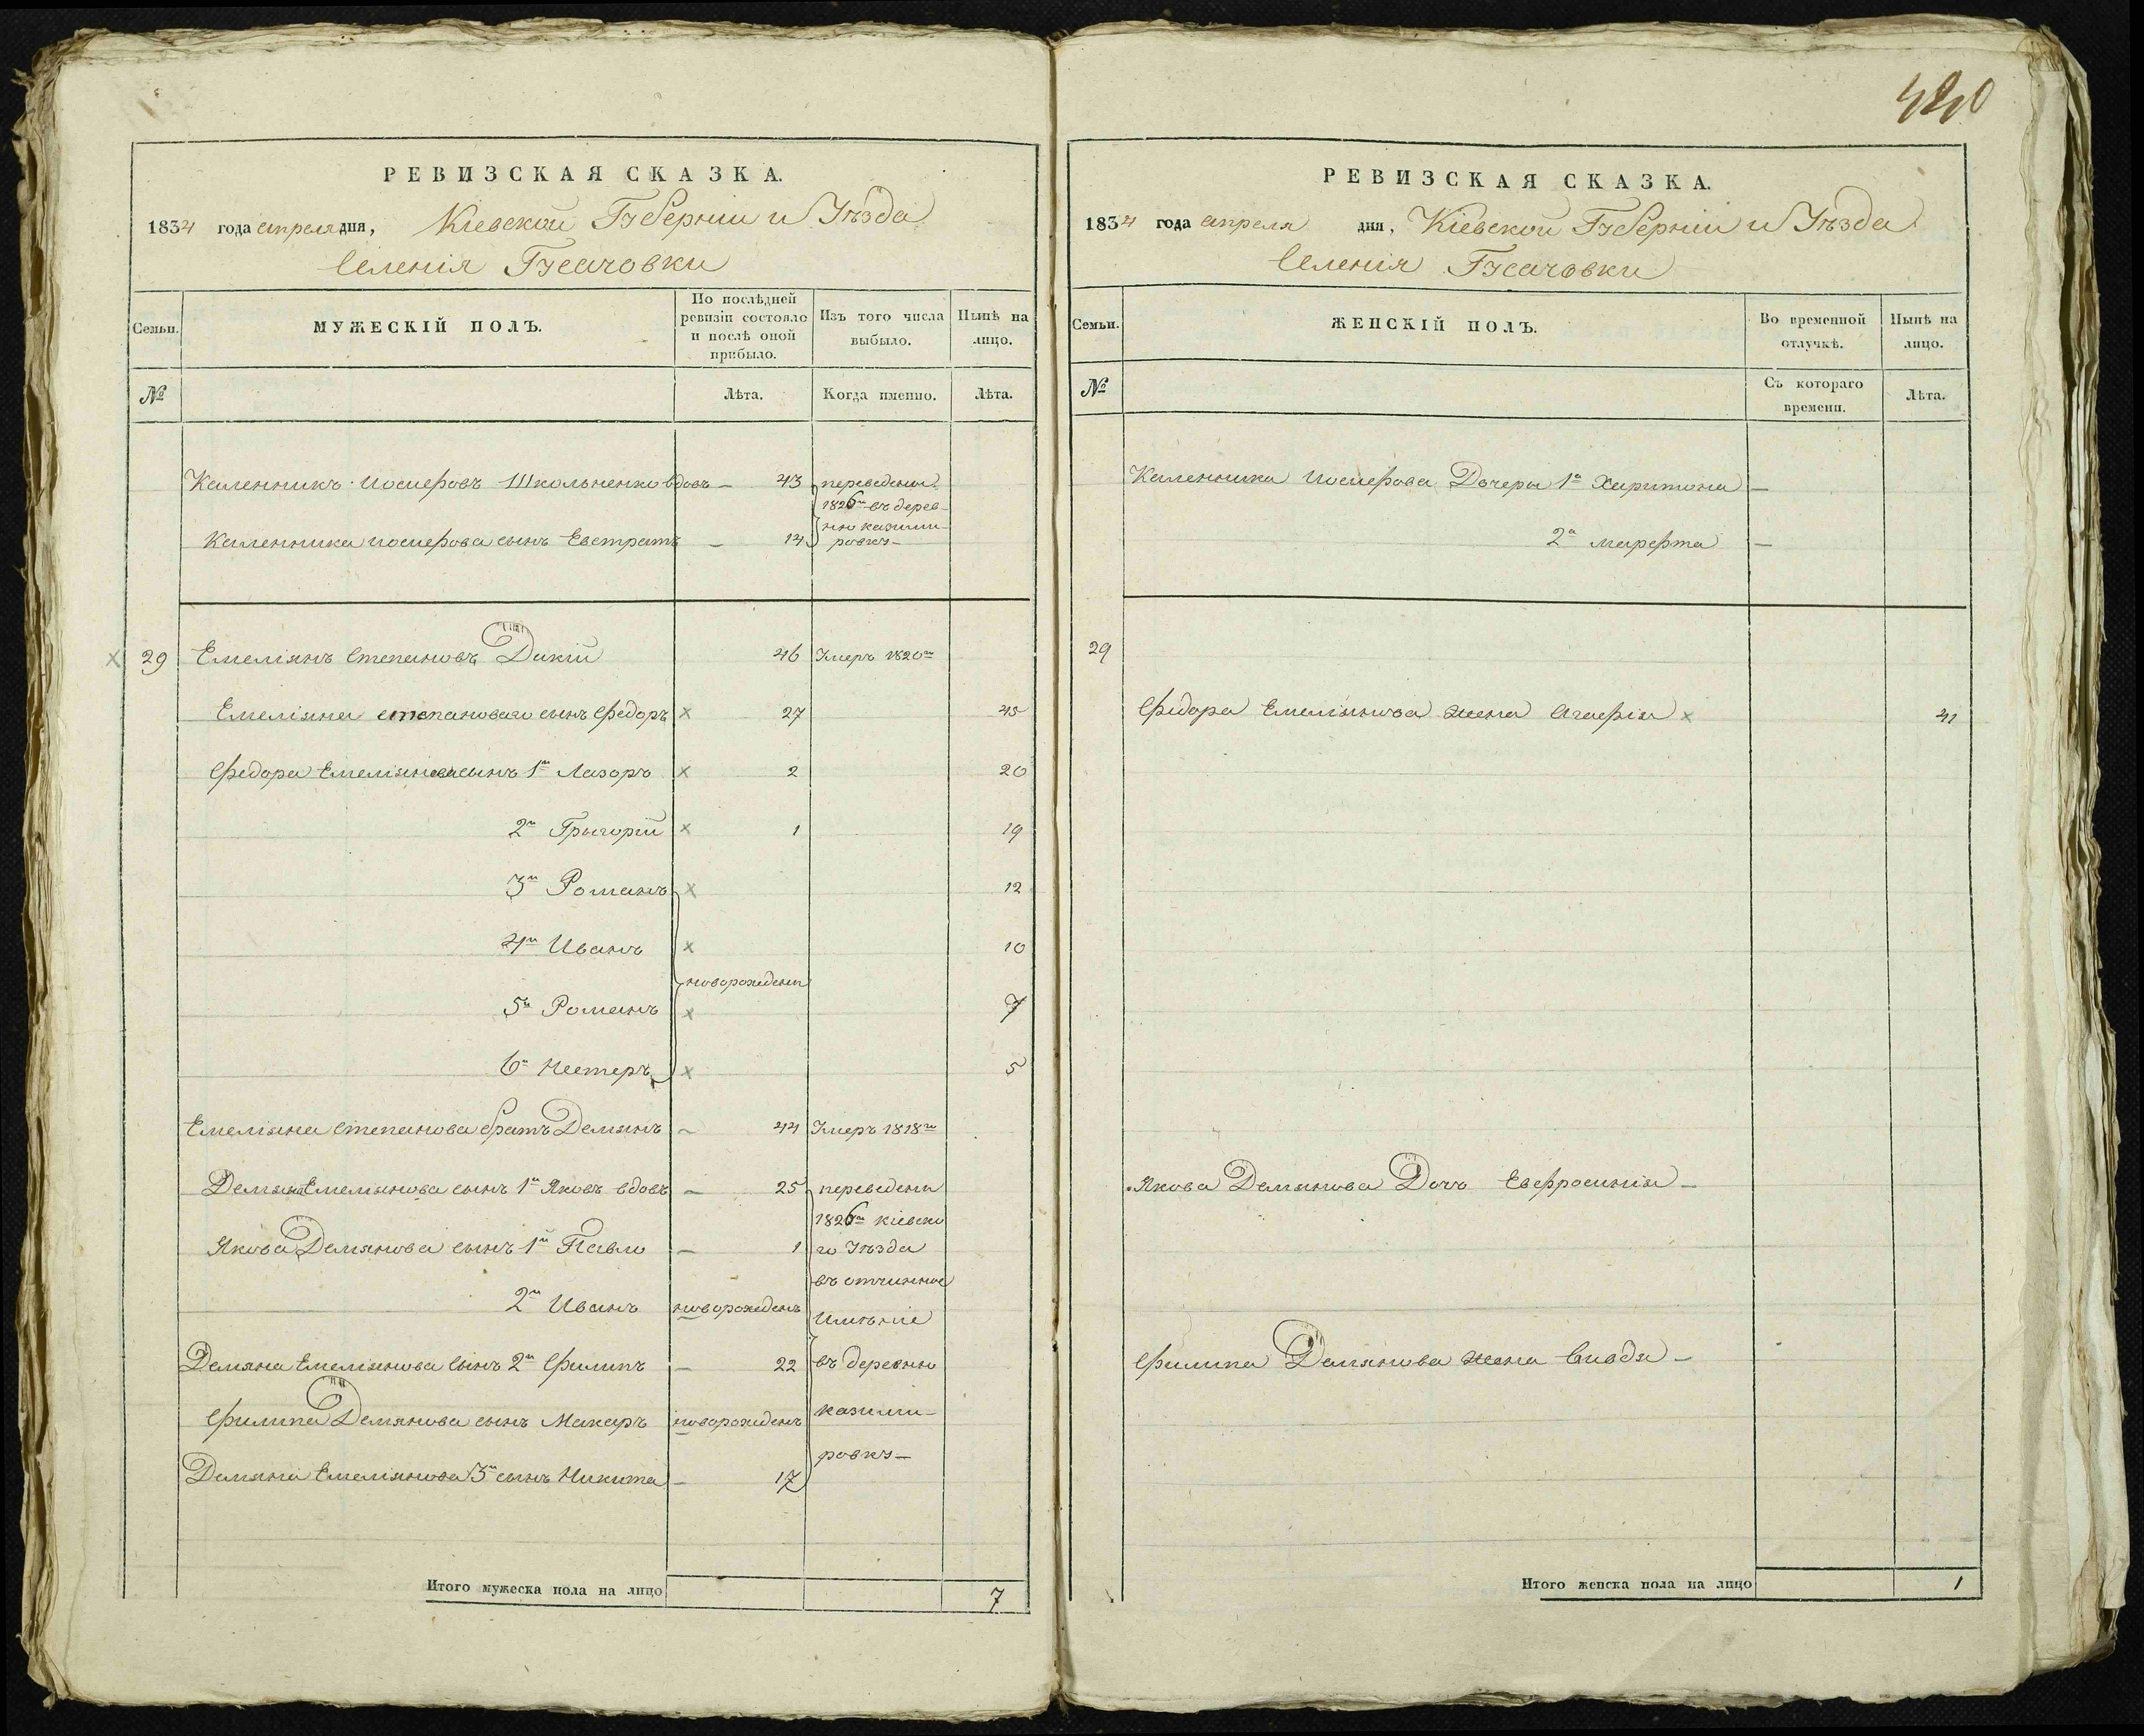 420
РЕВИЗСКАЯ СКАЗКА.
1834 года апреля дня, Кіевской Губерніи и Уѣзда
Селенія Гусачовки
Семьи.
МУЖЕСКІЙ ПОЛЪ.
По послѣдней
ревизіи состояло
и послѣ оной
прибыло.
Изъ того числа
выбыло.
Нынѣ на
лицо.
№
Лѣта.
Когда именно.
Лѣта.
Каленникъ Иосифовъ Школьненко вдовъ — 43 переведены
1826го въ дерев-
ню казими-
Каленника иосифова сынъ Евстратъ — 14 ровку —
29 Емеліянъ Степановъ Дикій 46 Умеръ 1820го
Емеліяна степановаго сынъ Федоръ х 27 45
Федора Емеліянова сынъ 1й Лазоръ х 2 20
2й Григорій х 1 19
3й Романъ х 12
4й Иванъ х 10
новорождены
5й Романъ х 7
6й Нестеръ х 5
Емеліяна Степанова братъ Демянъ — 44 Умеръ 1818го
Демяна Емелянова сынъ 1й Яковъ вдовъ — 25 переведены
1826го кіевско
Якова Демянова сынъ 1й Павло — 1 го Уѣзда
въ отчинное
2й Иванъ новорожденъ
Имѣніе
Демяна Емеліянова Сынъ 2й Филипъ — 22 въ деревню
Филипа Демянова сынъ Макаръ новорожденъ казими-
ровку —
Демяна Емеліянова 3й сынъ Никита — 17
Итого мужеска пола на лицо 7
РЕВИЗСКАЯ СКАЗКА.
1834 года апреля дня, Кіевской Губерніи и Уѣзда
Селенія Гусачовки
Семьи.
ЖЕНСКІЙ ПОЛЪ.
Во временной
отлучкѣ.
Нынѣ на
лицо.
№
Съ котораго
времени.
Лѣта.
Каленника Иосифова Дочеры 1я Харитона —
2я марфта —
29
Федора Емеліянова жена Агафія х 41
Якова Демянова Дочь Евфросинія —
Филипа Демянова жена Явдя —
Итого женска пола на лицо 1